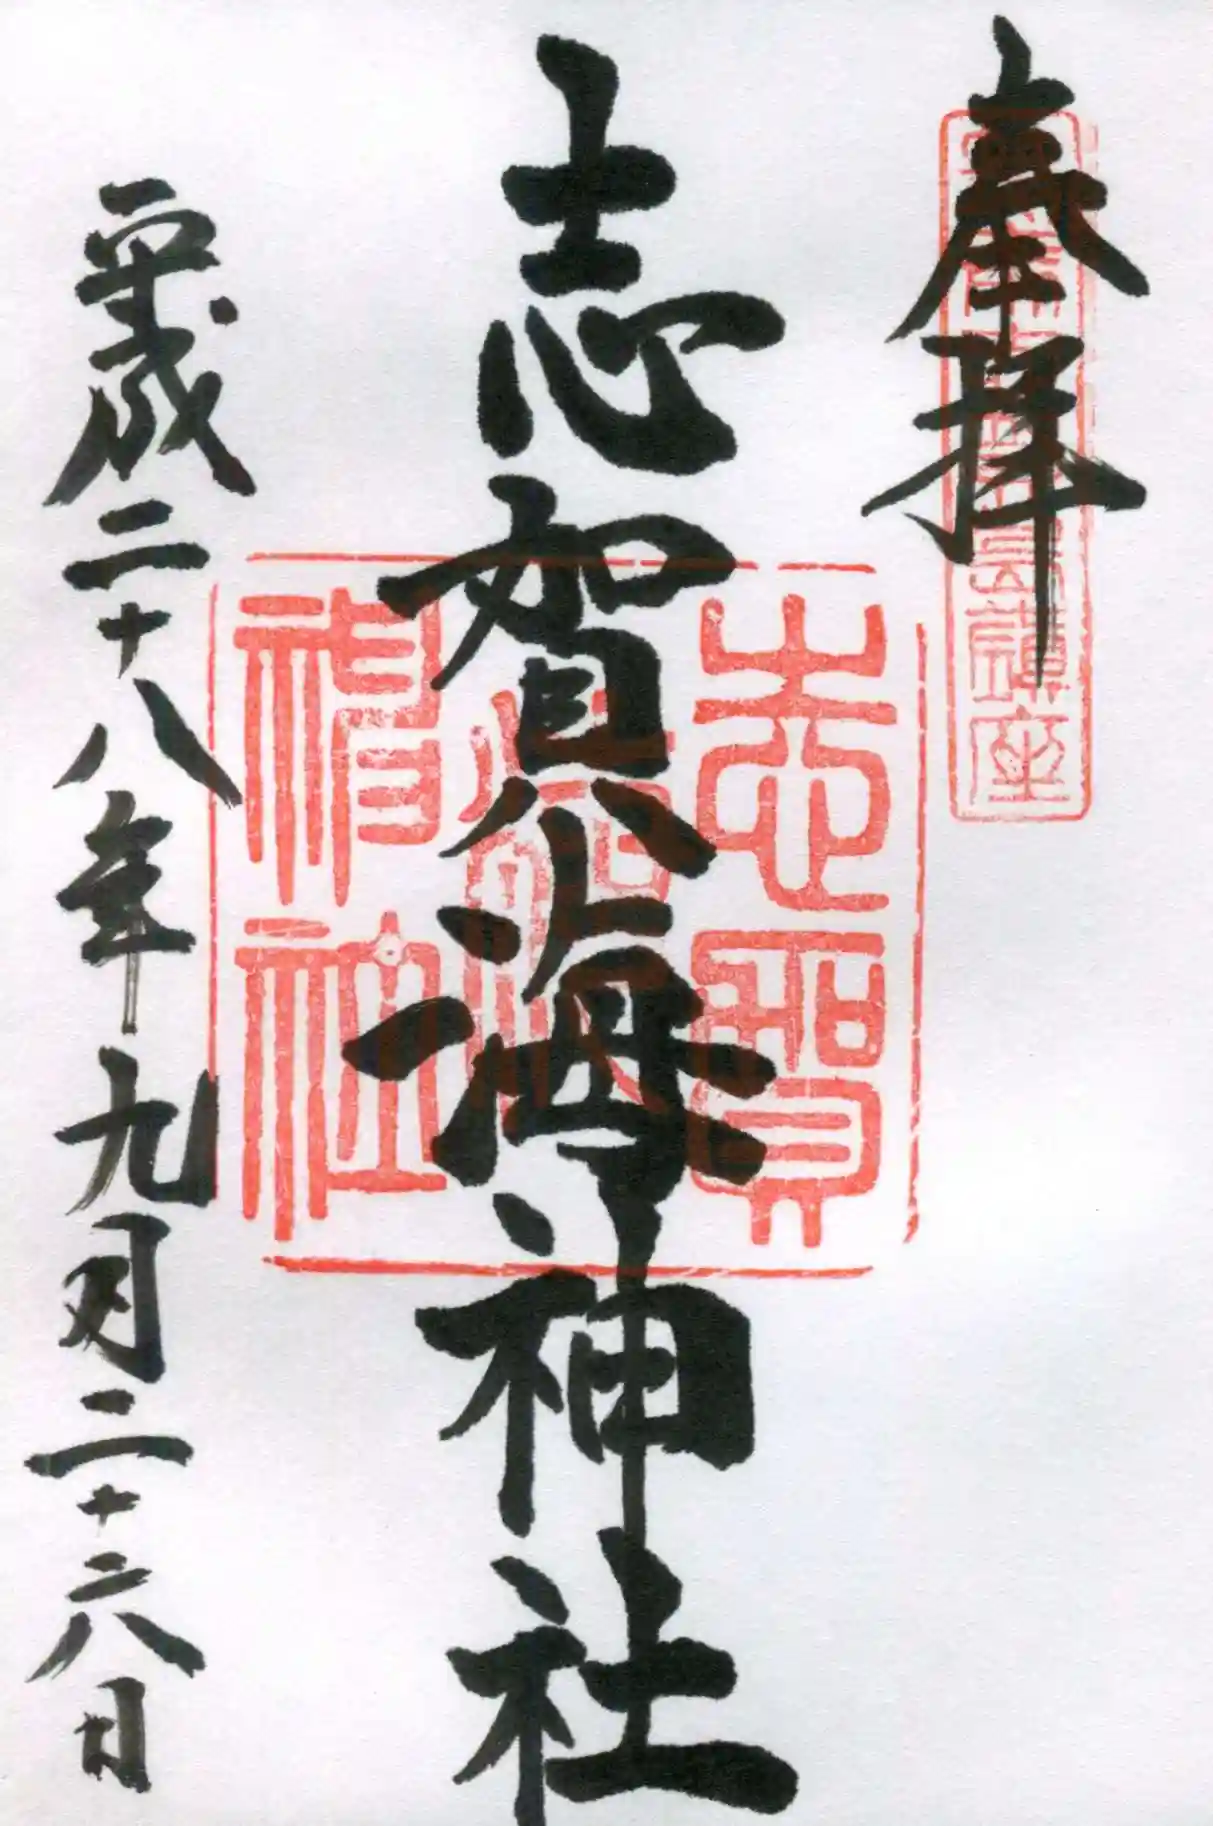 奉拝
志賀海神社
志賀海神社
平成二十八年九月二十六日